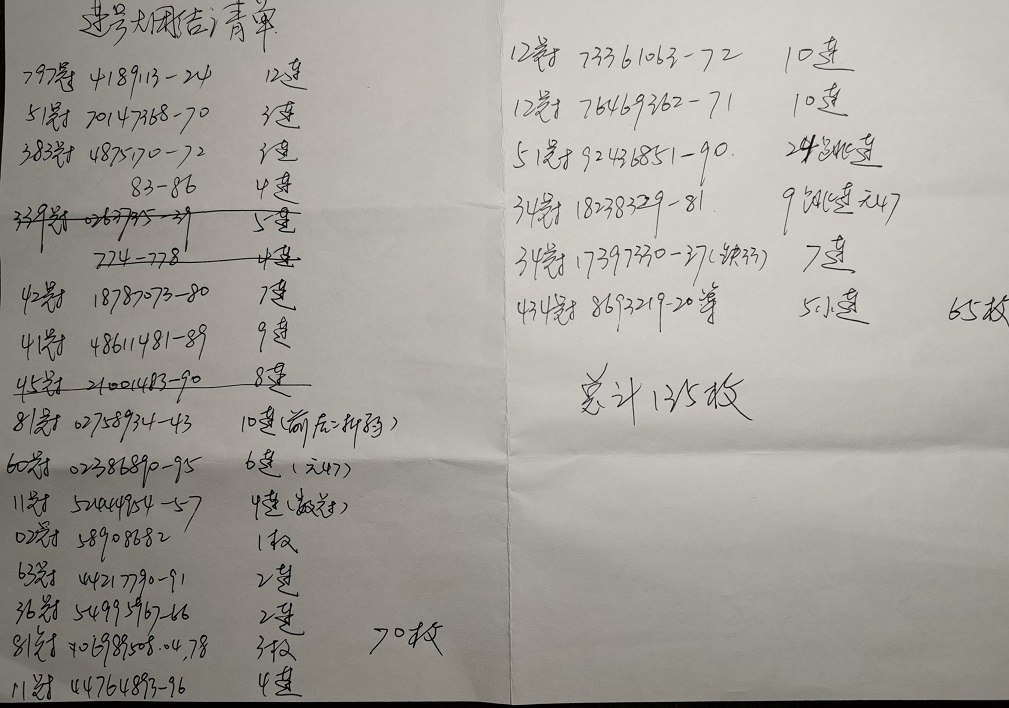 连号大团结清单
797冠 4189113-24 12连
51冠 70147368-70 3连
383冠 4875170-72 3连
83-86 4连
339冠 02637335-39 5连
774-778 4连
42冠 18787073-80 7连
41冠 48611481-89 9连
45冠 21001483-90 8连
81冠 02758934-43 10连(前后二折弱)
60冠 02386890-95 6连(无47)
11冠 52444954-57 4连
02冠 58908682 1枚
63冠 44217790-91 2连
36冠 54995967-66 2连
81冠 3枚
70枚
11冠 44764893-96 4连
12冠 73361063-72 10连
12冠 76469362-71 10连
51冠 92436851-90. 24跳连
34冠 18238329-81 9跳连无47
34冠 17397330-37(缺33) 7连
434冠 8693219-20等 5小连
65枚
总计135枚